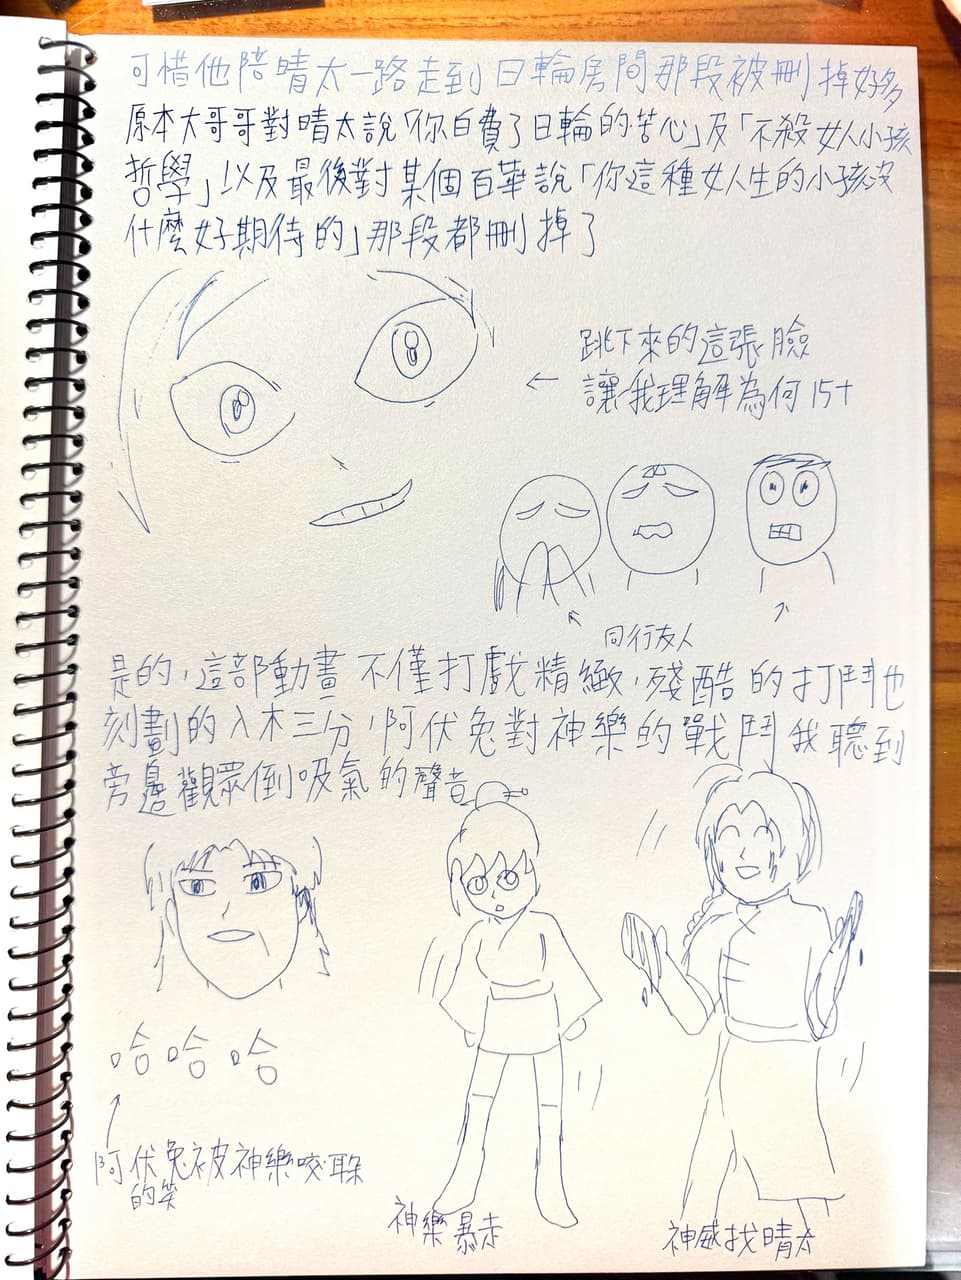 可惜他陪晴太一路走到日輪房間那段被刪掉好多
原本大哥哥對晴太說「你白費了日輪的苦心」及「不殺女人小孩
哲學」以及最後對某個百華說「你這種女人生的小孩沒
什麼好期待的」那段都刪掉了
跳下來的這張臉
← 讓我理解為何15+
同行友人
是的,這部動畫不僅打戲精緻,殘酷的打鬥也
刻劃的入木三分,阿伏兔對神樂的戰鬥我聽到
旁邊觀眾倒吸氣的聲音
哈哈哈
阿伏兔被神樂咬耳朵
的笑
神樂暴走
神威找晴太